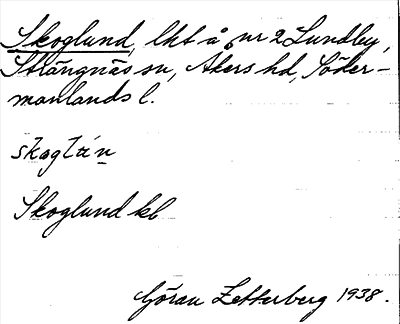 Skoglund, lht å nr 2 Lundby,
Strängnäs sn, Åkers hd, Söder-
manlands l.
skogla´n
Skoglund kb
Göran Zetterberg 1938.